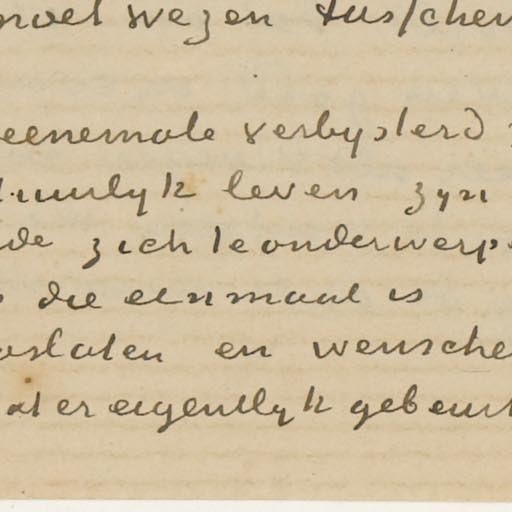 moet wezen tusschen
eenemale verbysterd
tuurlyk leven zyn
de zich te onderwerp
die eenmaal is
oslaten en wensche
at er eigentlyk gebeurt